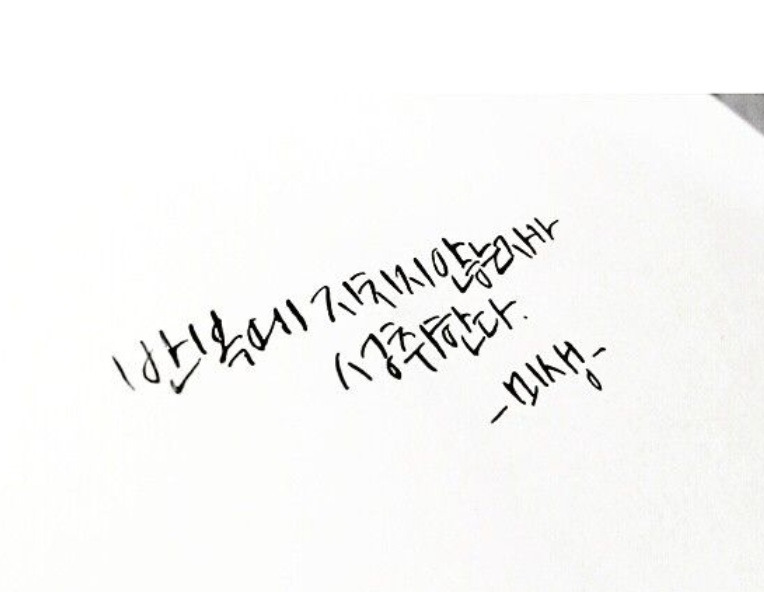 반복에 지치지 않는 자가
성취한다.
-미생-